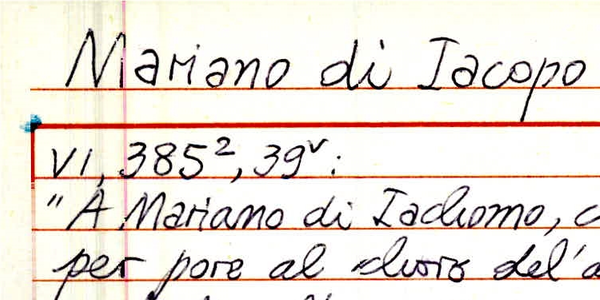 Mariano di Iacopo
VI, 385², 39ᵛ:
"A Mariano di Iachomo, c
per pore al choro del'a